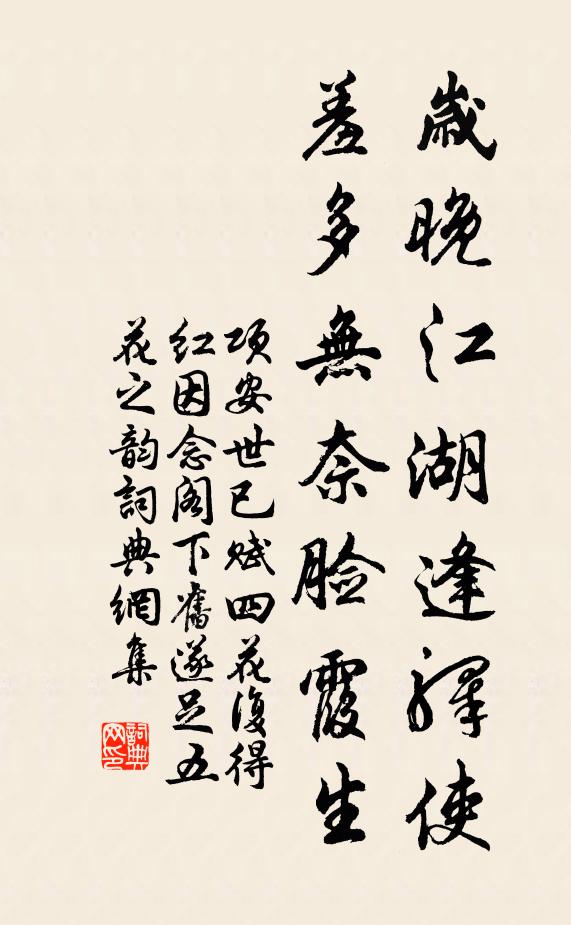 歲晚江湖逢驛使
羞多無奈臉霞生
項安世已賦四花復得
紅因念閣下舊遂足五
花之韵詞典網集
詞典
网印